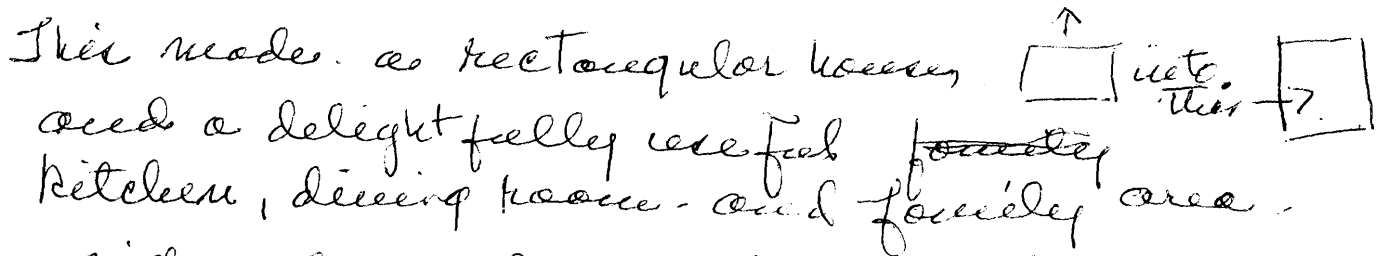 This made a rectangular house, into this →
and a delightfully useful family
kitchen, dining room - and family area.